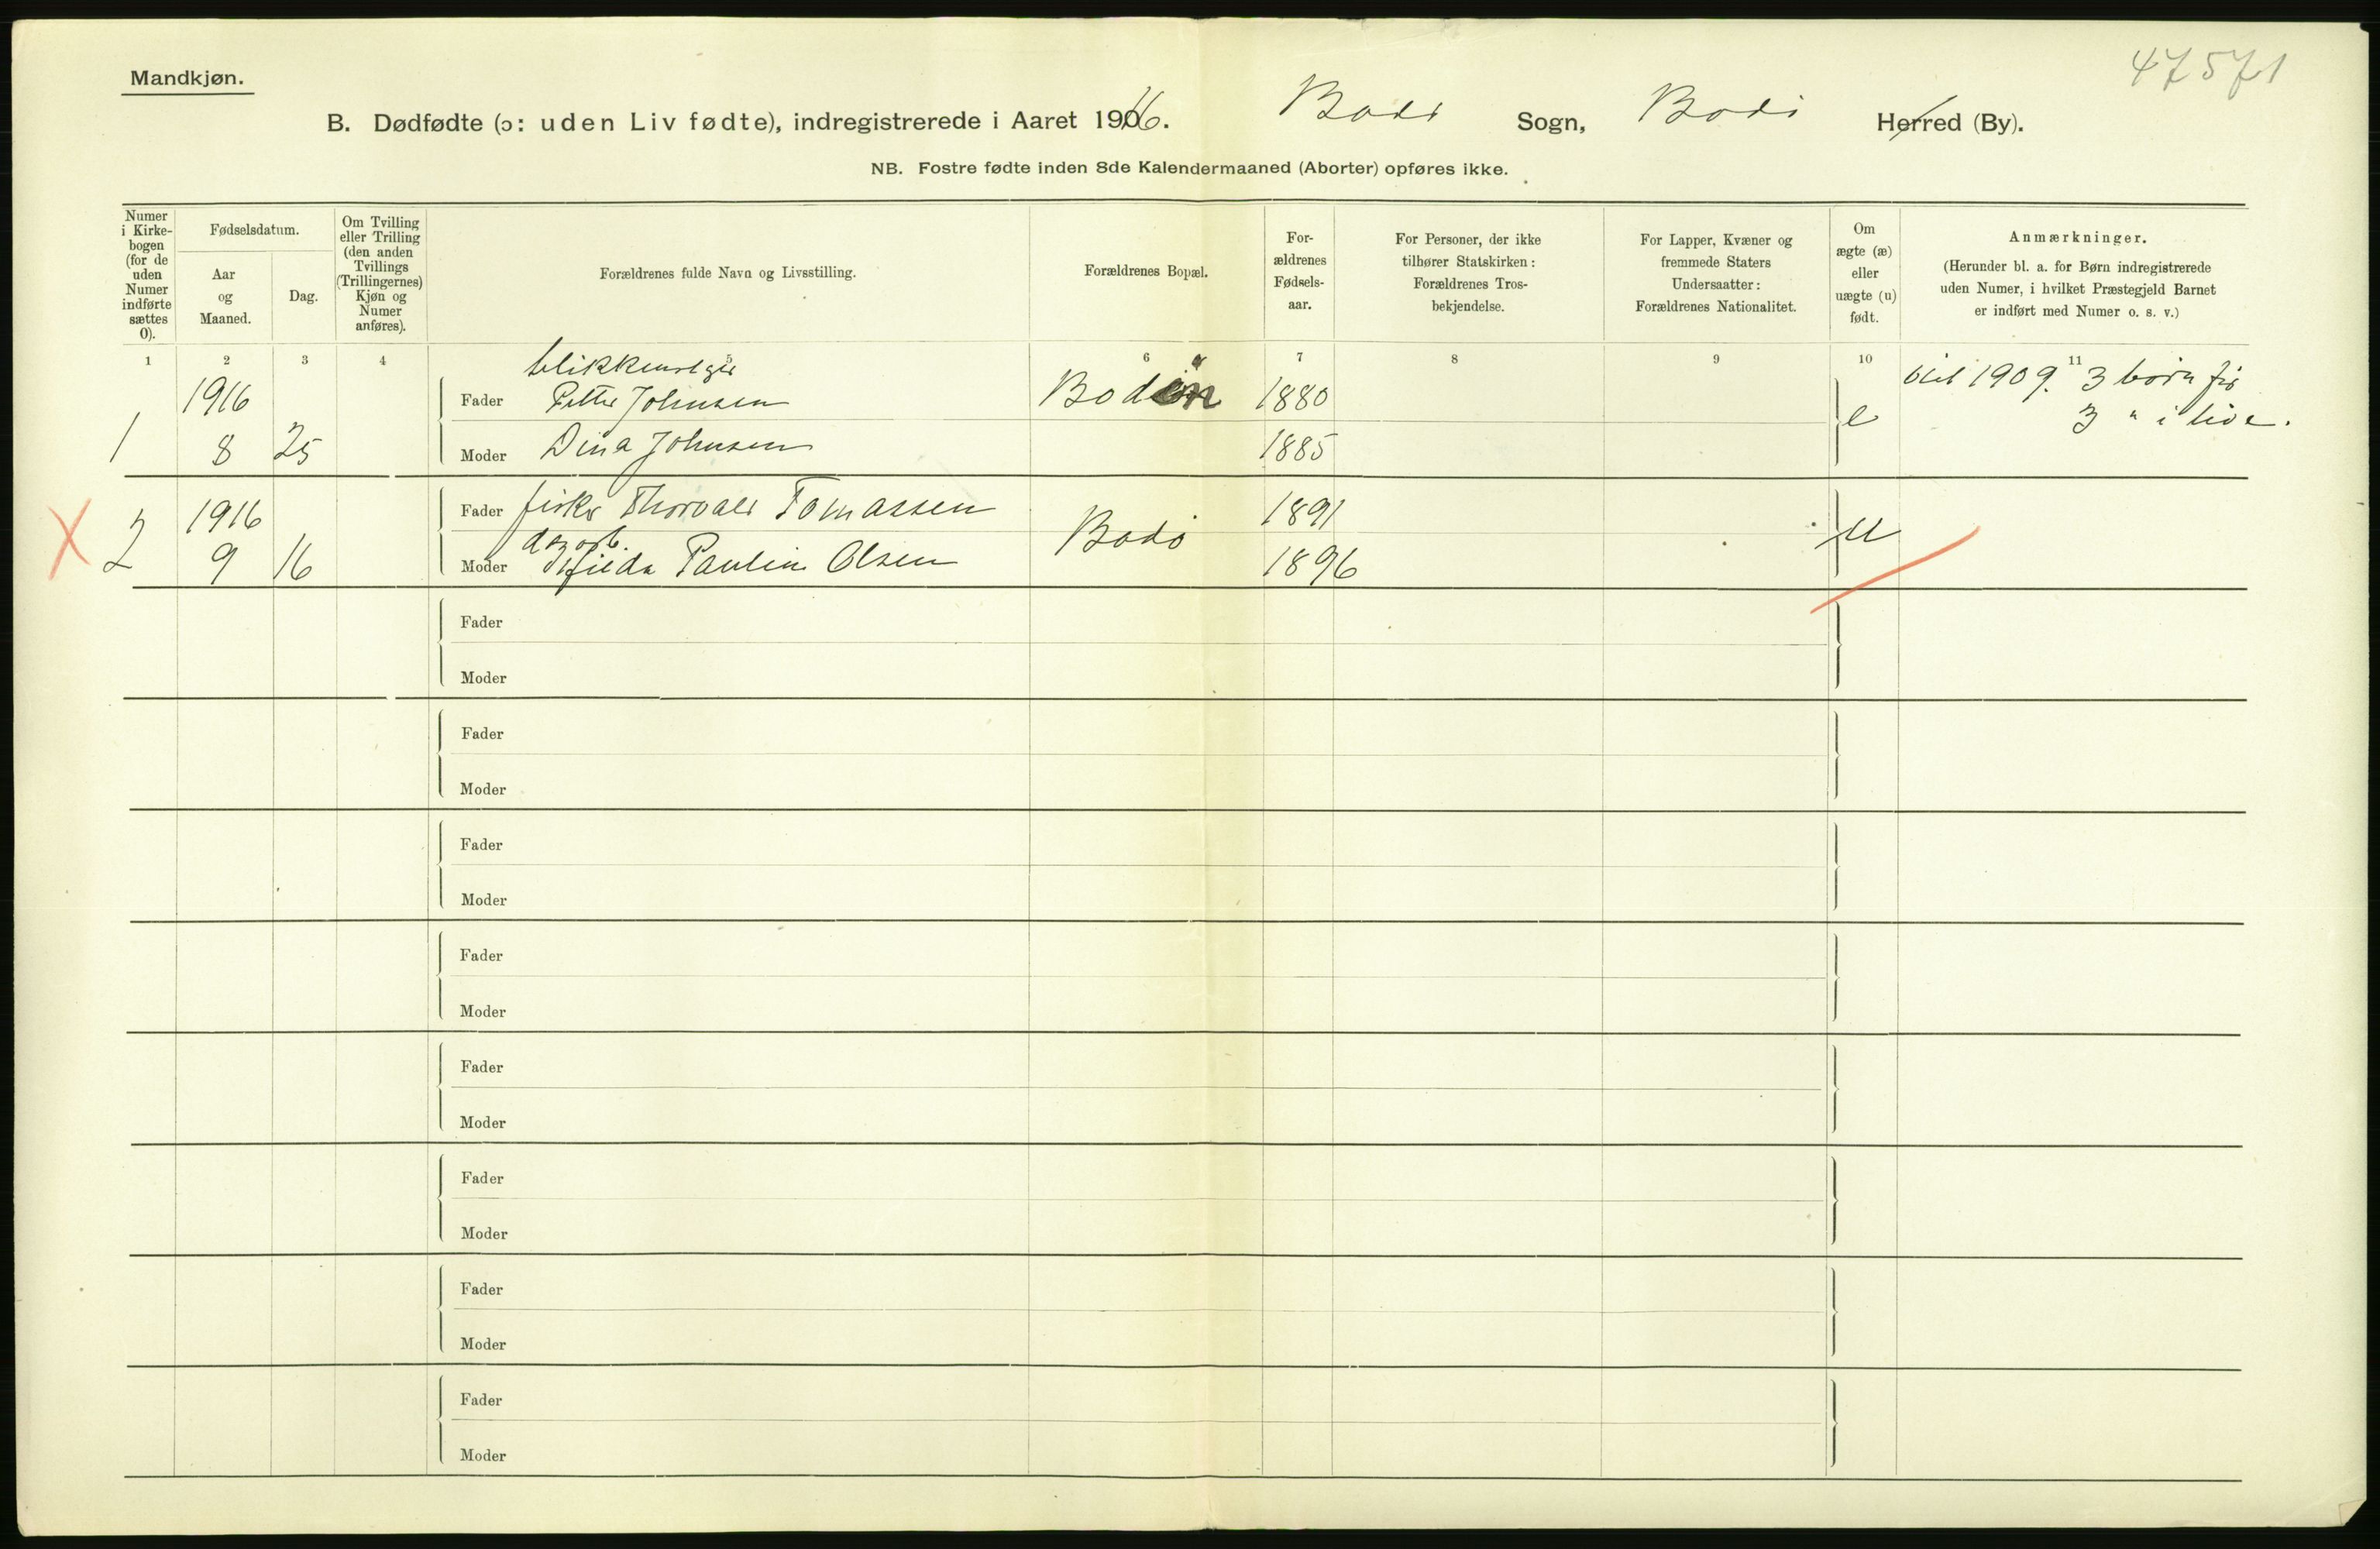 47571
Mandkjøn.
B. Dødfødte (ɔ: uden Liv fødte), indregistrerede i Aaret 1916. Bodø Sogn, Bodø Herred (By).
NB. Fostre fødte inden 8de Kalendermaaned (Aborter) opføres ikke.
Numer
i Kirke-
bogen
(for de
uden
Numer
indførte
sættes
0).
Fødselsdatum.
Aar
og
Maaned.
Dag.
Om Tvilling
eller Trilling
(den anden
Tvillings
(Trillingernes)
Kjøn og
Numer
anføres).
Forældrenes fulde Navn og Livsstilling.
Forældrenes Bopæl.
For-
ældrenes
Fødsels-
aar.
For Personer, der ikke
tilhører Statskirken:
Forældrenes Tros-
bekjendelse.
For Lapper, Kvæner og
fremmede Staters
Undersaatter:
Forældrenes Nationalitet.
Om
ægte (æ)
eller
uægte (u)
født.
Anmærkninger.
(Herunder bl. a. for Børn indregistrerede
uden Numer, i hvilket Præstegjeld Barnet
er indført med Numer o. s. v.)
1 2 3 4 5 6 7 8 9 10 11
blikkenslager
1916 Fader Petter Johnsen 1880 viet 1909. 3 børn før
1 8 25 Moder Dina Johnsen 1885 e 3 " i live.
2 1916 Fader fisker Thorvald Tomassen Bodø 1891 u
9 16 Moder Paulin Olsen 1896
Fader
Moder
Fader
Moder
Fader
Moder
Fader
Moder
Fader
Moder
Fader
Moder
Fader
Moder
Fader
Moder